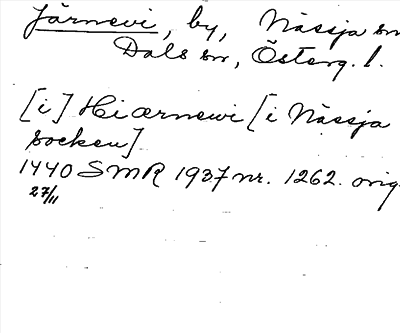 Järnevi, by, Nässja sn
Dals sn, Österg. l.
[i] Hiærnewi [i Nässja
socken]
1440 SMR 1937 nr. 1262. orig.
27/11